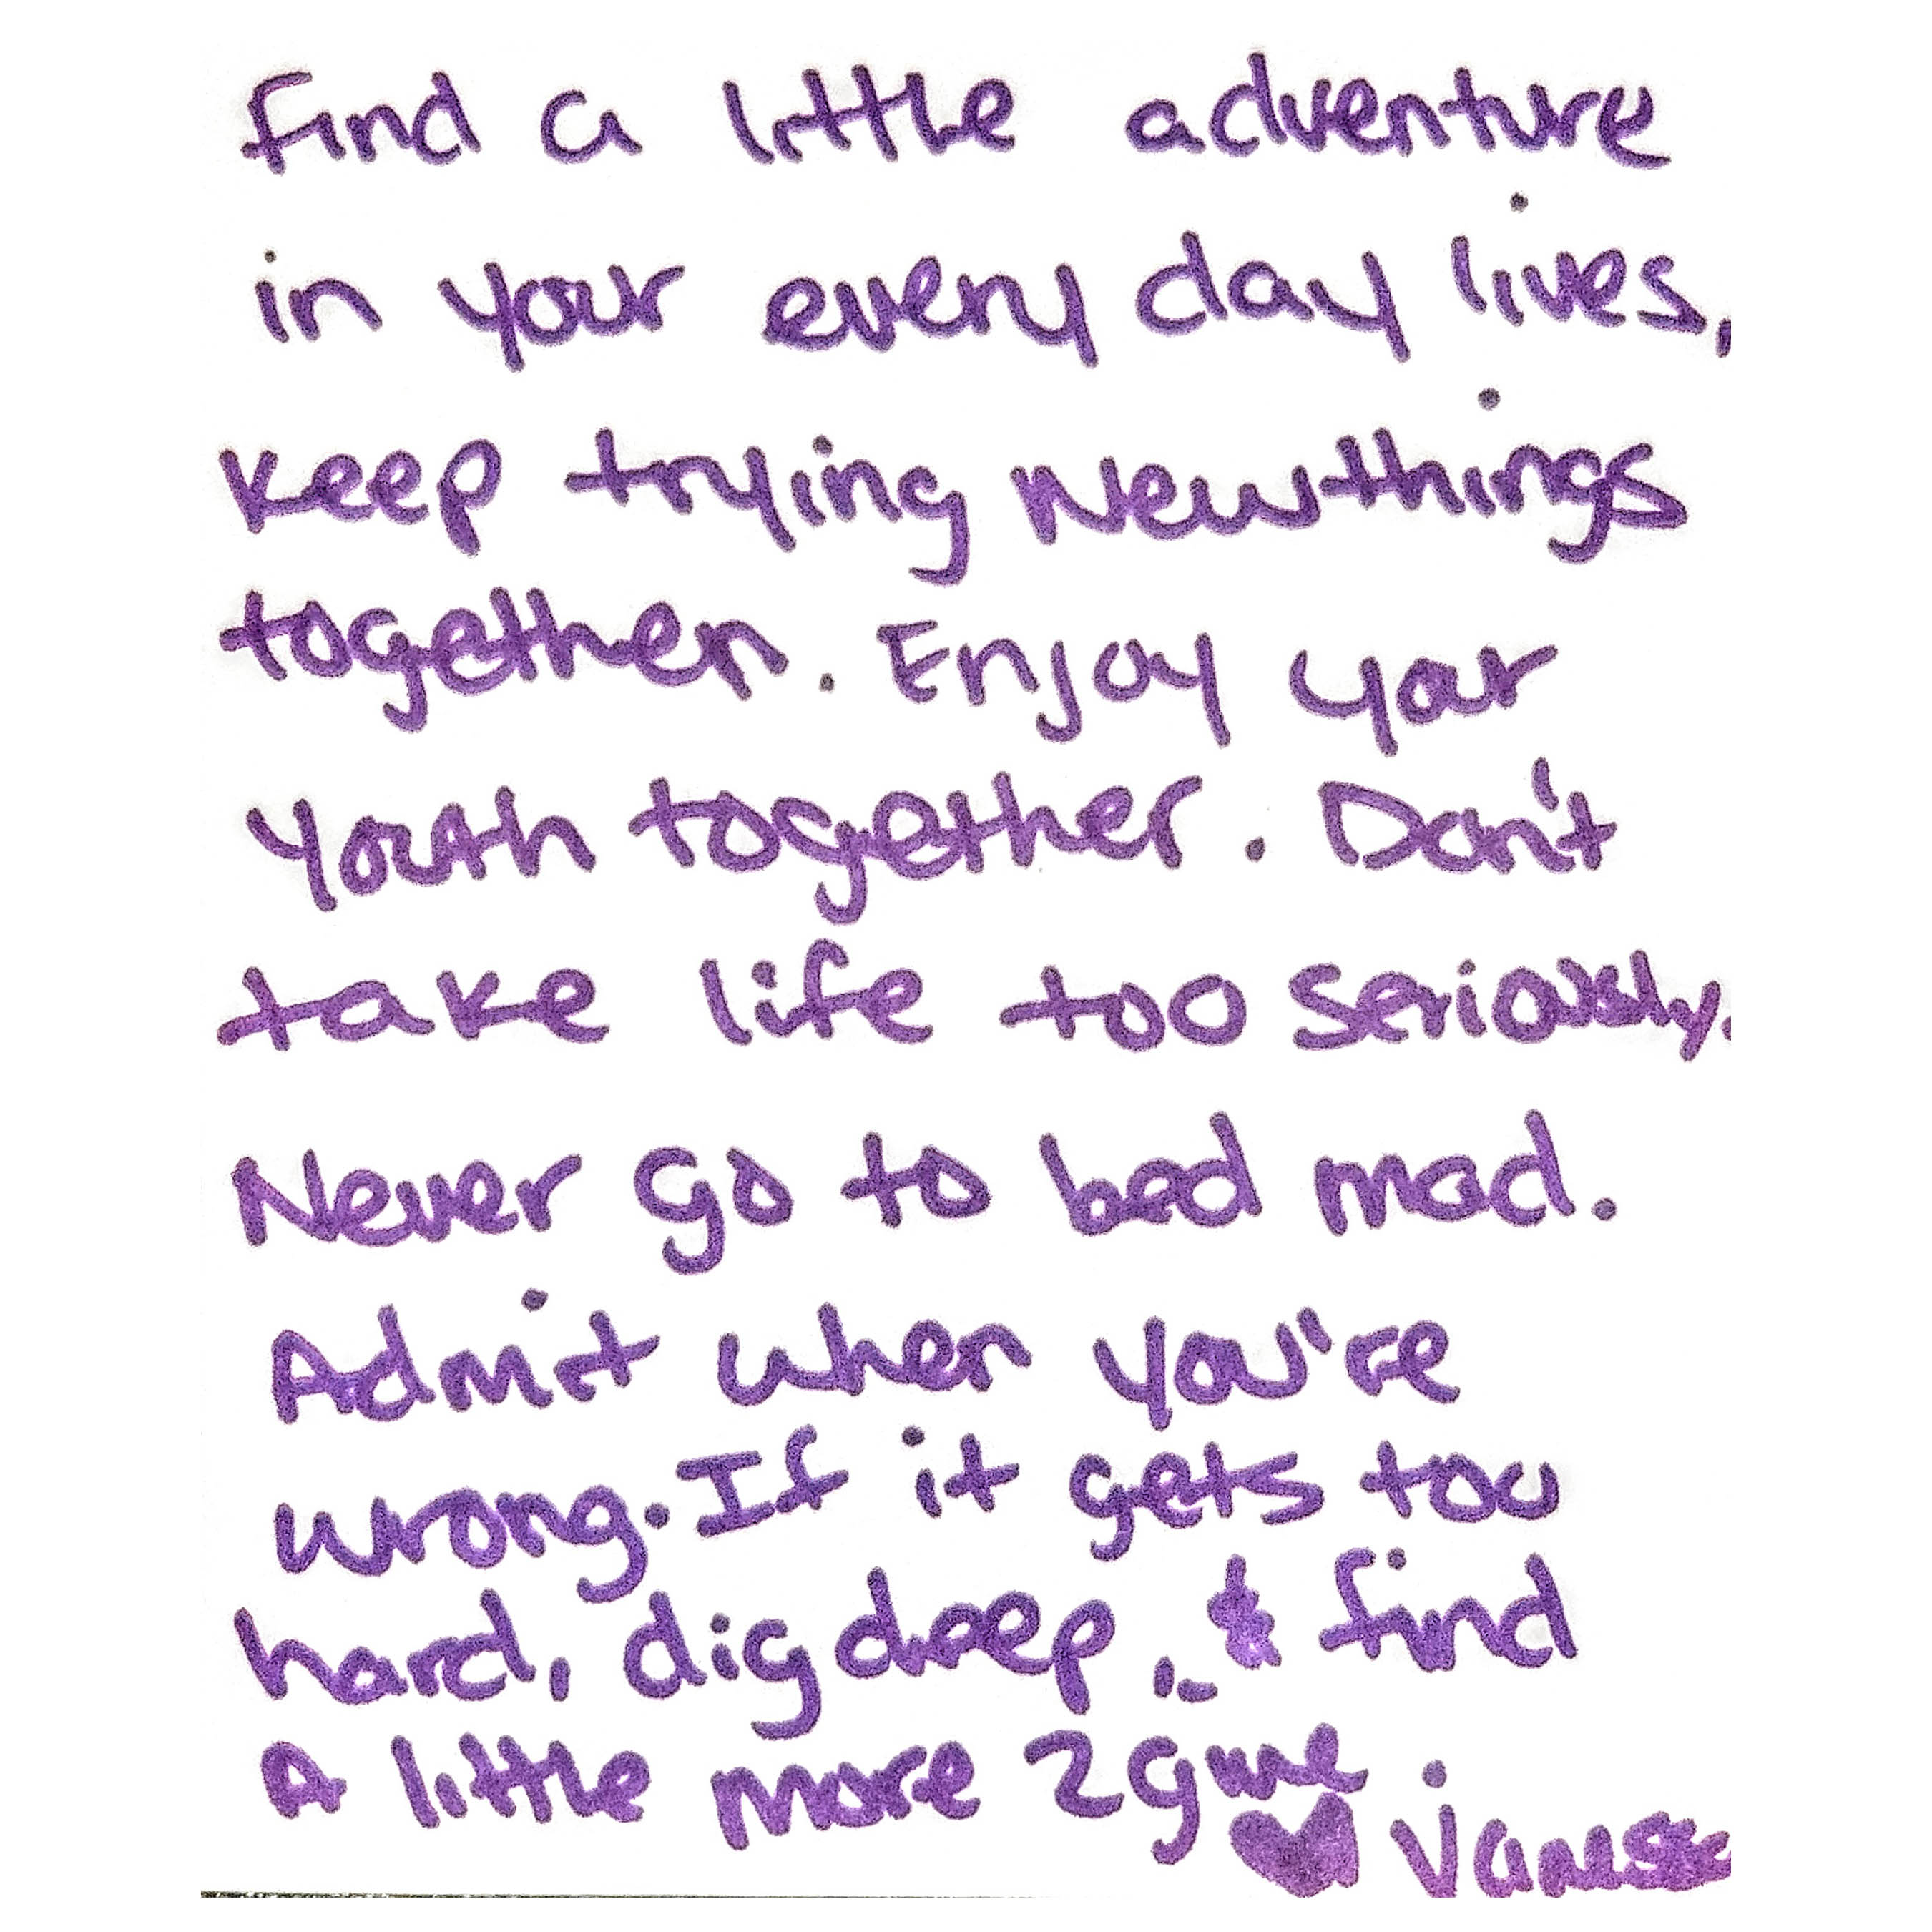 find a little adventure
in your every day lives,
keep trying New things
together. Enjoy your
youth together. Don't
take life too seriously.
Never go to bed mad.
Admit when you're
wrong. If it gets too
hard, dig deep, & find
A little more 2 give.
♥ Vanessa